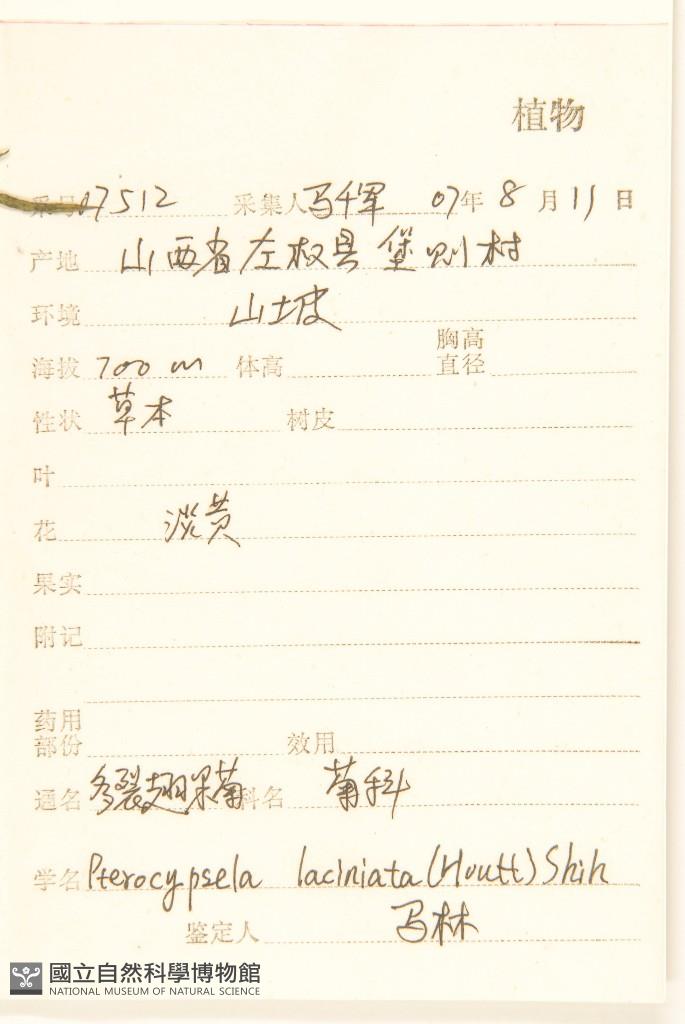 植物
采号 07512 采集人 马千军 07年 8月 11日
产地 山西省左权县堡则村
环境 山土坡
胸高
海拔 700 m 体高 直径
性状 草本 树皮
叶
花 淡黄
果实
附记
药用
部份 效用
通名 多裂翅果菊 科名 菊科
学名 Pterocypsela laciniata (Houtt) Shih
鉴定人 马林
國立自然科學博物館
NATIONAL MUSEUM OF NATURAL SCIENCE